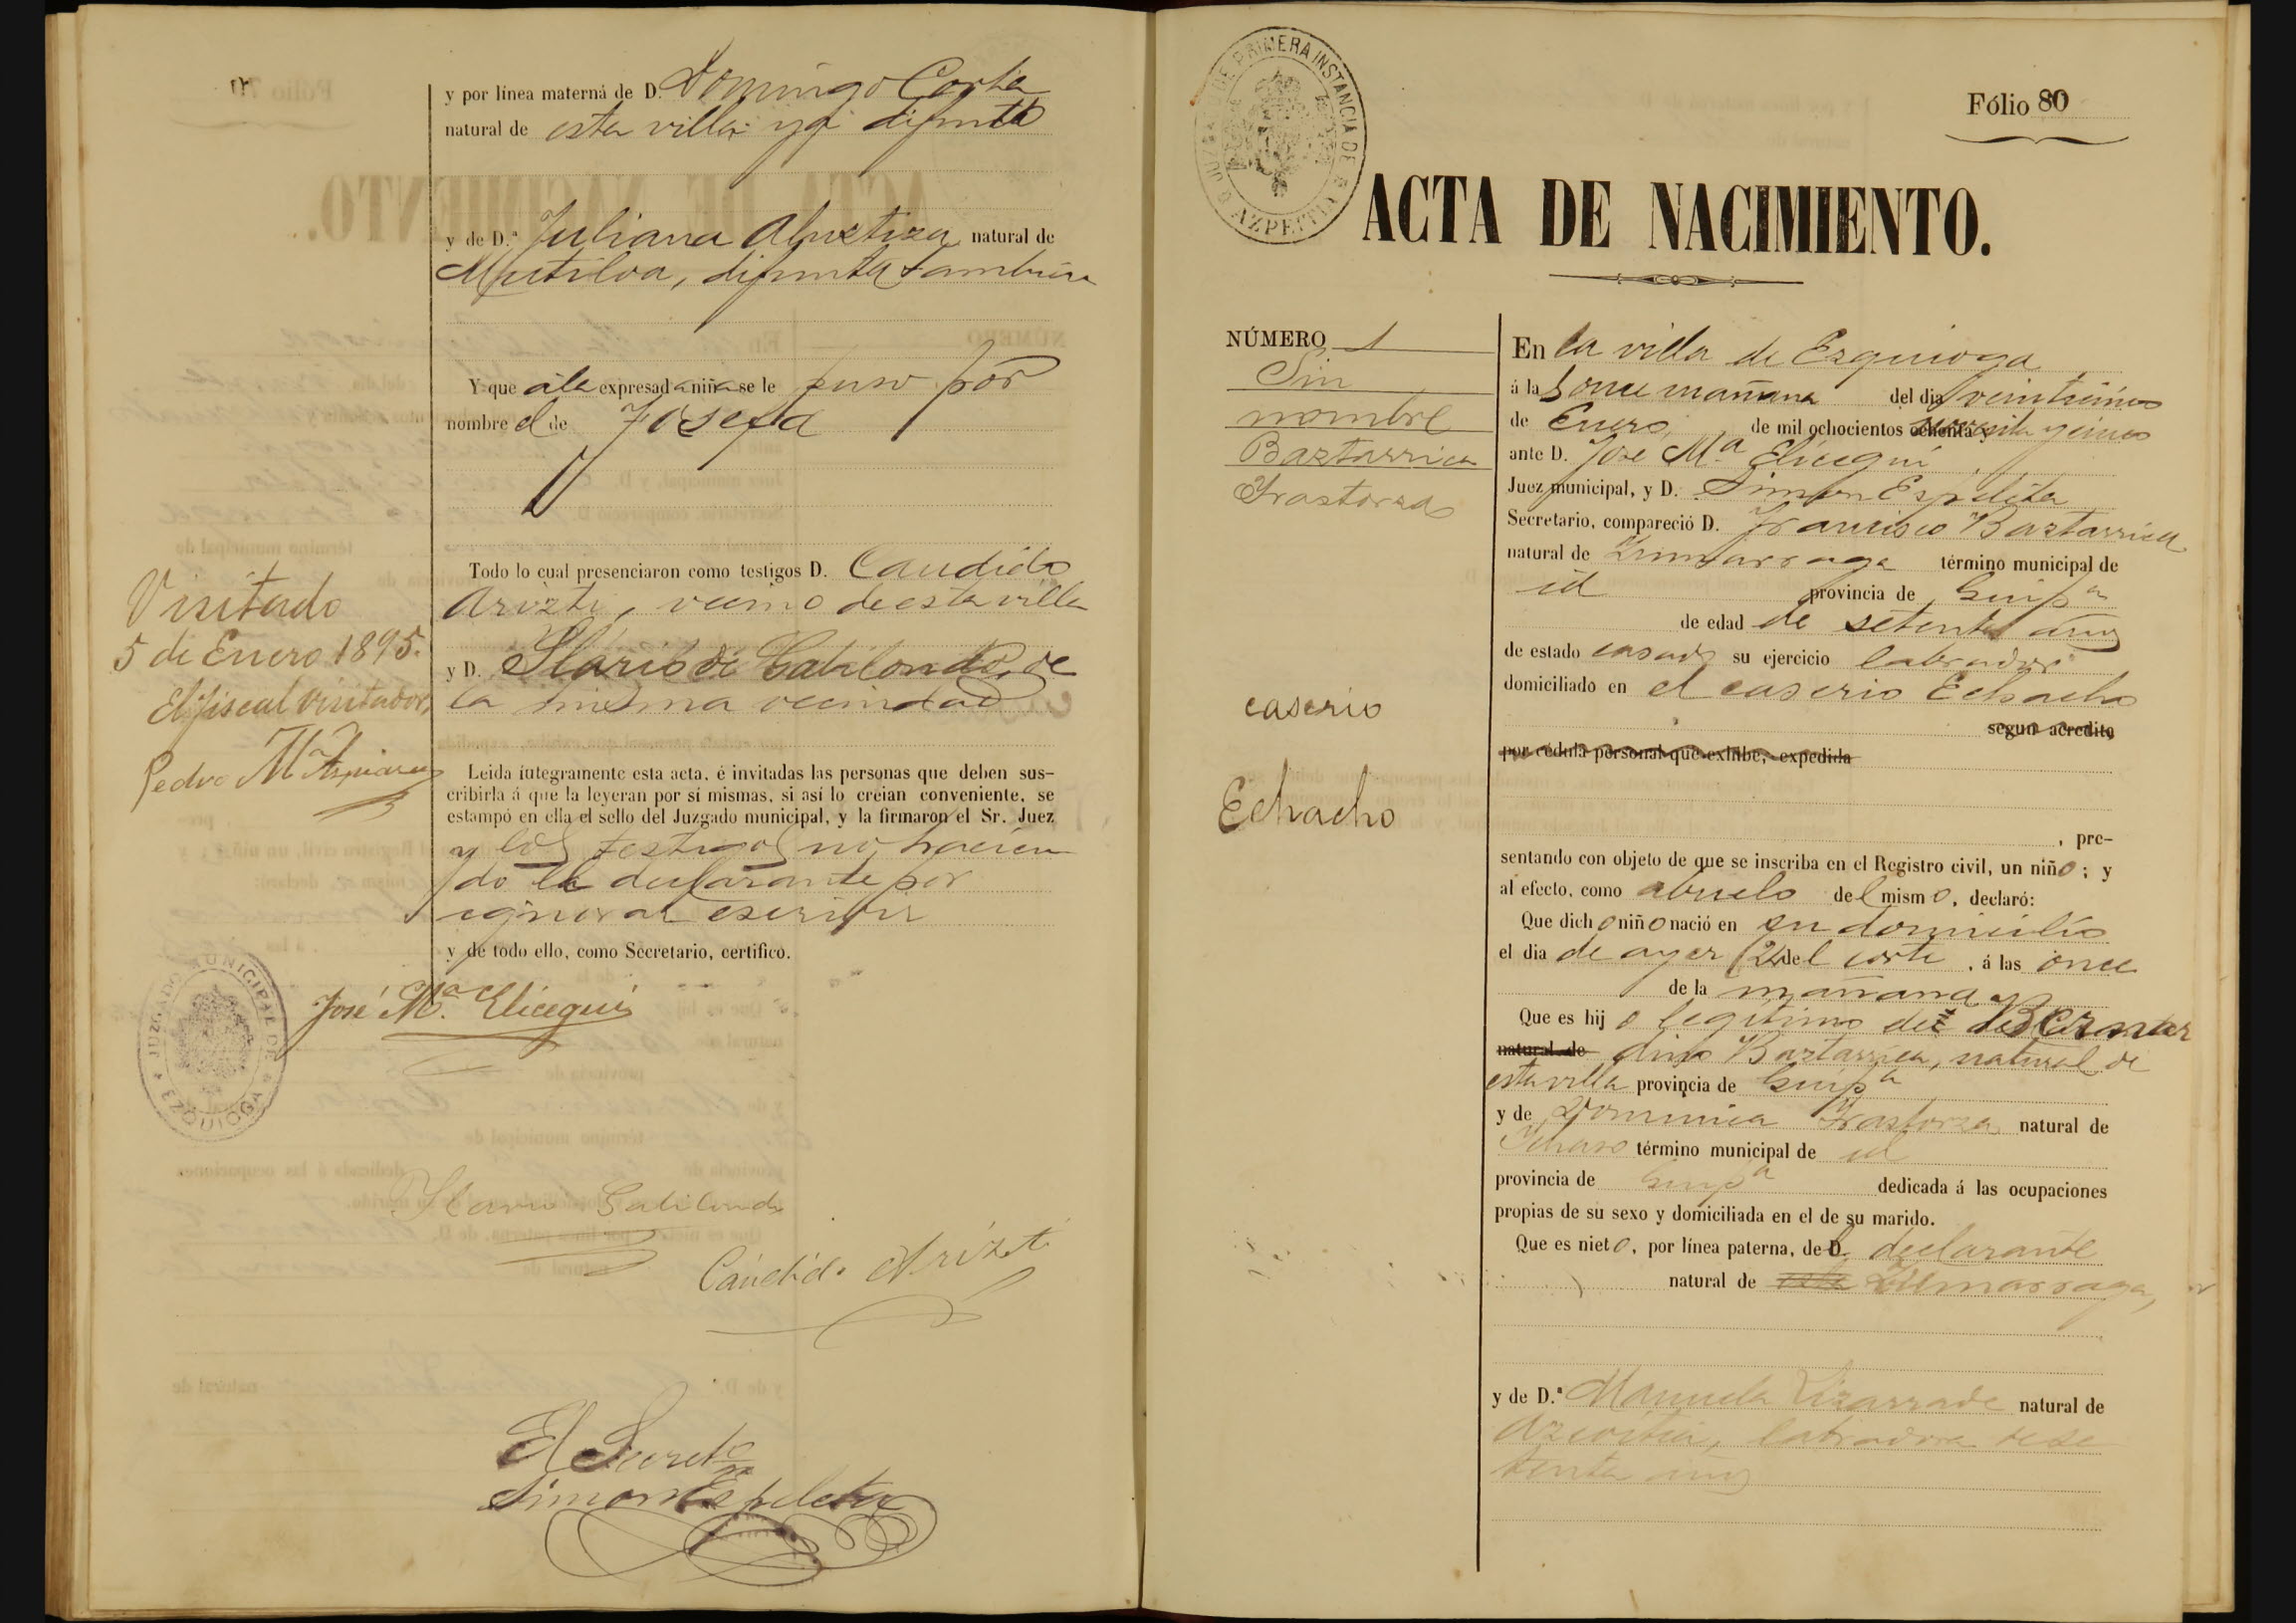 y por línea materna de D. Domingo Corta
natural de esta villa ya difunto
y de D.ª Juliana Alustiza natural de
Mutiloa, difunta tambien
Y que á la expresada niña se le puso por
nombre el de Josefa
Todo lo cual presenciaron como testigos D. Candido
Arizti, vecino de esta villa
y D. Ilario de Gabilondo, de
la misma vecindad
Visitado
5 de Enero 1895.
El fiscal visitador,
Pedro Mª
Leida íntegramente esta acta, é invitadas las personas que deben sus-
cribirla á que la leyeran por sí mismas, si así lo creian conveniente, se
estampó en ella el sello del Juzgado municipal, y la firmaron el Sr. Juez
y los testigos no hacien
do la declarante por
ignorar escribir
y de todo ello, como Secretario, certifico.
JUZGADO MUNICIPAL DE EZQUIOGA
José Mª. Elicegui
Ilario Gabilondo
Candido Arizti
El Secretº
Simon Espeleta
JUZGADO DE PRIMERA INSTANCIA DE AZPEITIA
Fólio 80
ACTA DE NACIMIENTO.
NÚMERO 1
Sin
nombre
Baztarrica
Irastorza
caserio
Echacho
En la villa de Ezquioga
á las once mañana del dia veinticinco
de Enero, de mil ochocientos ochenta noventa y cinco
ante D. Jose Mª Elicegui
Juez municipal, y D. Simon Espeleta
Secretario, compareció D. Francisco Baztarrica
natural de Zumarraga término municipal de
id provincia de Guipª
de edad de setenta años
de estado casado su ejercicio labrador
domiciliado en el caserio Echacho
segun acredita
por cédula personal que exhibe, expedida
, pre-
sentando con objeto de que se inscriba en el Registro civil, un niño; y
al efecto, como abuelo del mismo, declaró:
Que dicho niño nació en su domicilio
el dia de ayer 24 del corte, á las once
de la mañana
Que es hijo legitimo de Bernar
natural de dino Baztarrica, natural de
esta villa provincia de Guipª
y de Dominica Irastorza natural de
Ichaso término municipal de id
provincia de Guipª dedicada á las ocupaciones
propias de su sexo y domiciliada en el de su marido.
Que es nieto, por línea paterna, del D. declarante
natural de esta Zumarraga,
y de D.ª Manuela Lizarralde natural de
Azcoitia, labradora de se
tenta años